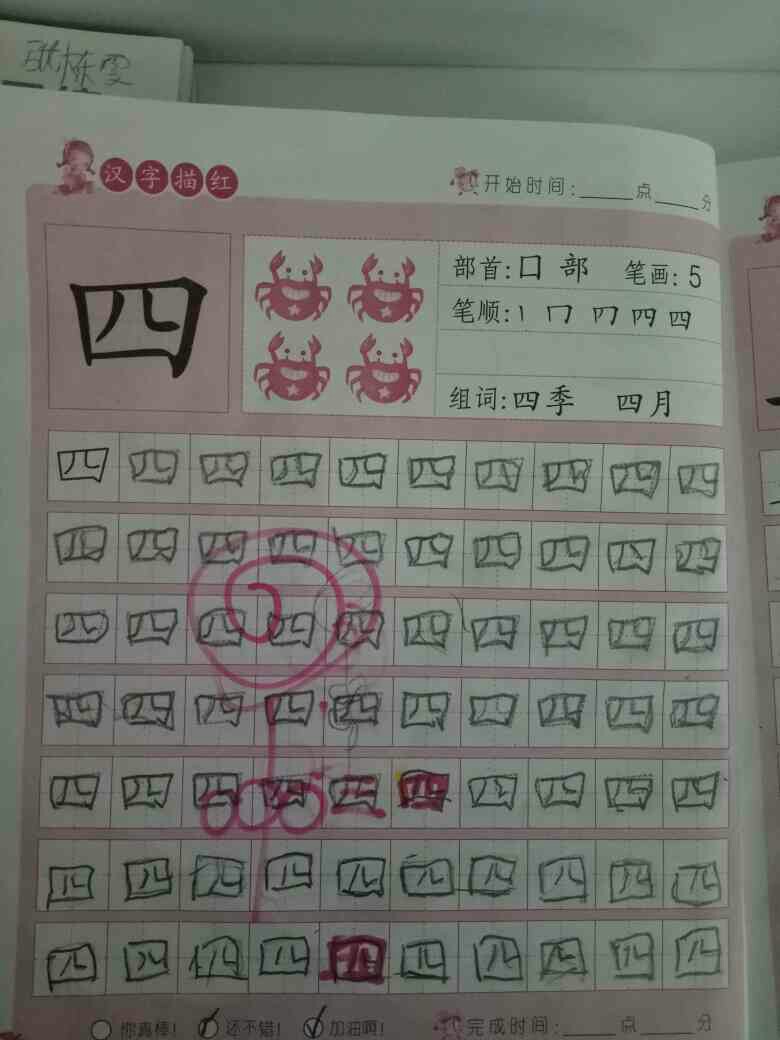 汉字描红
开始时间:____点____分
四
部首:口 部 笔画:5
笔顺:丨 冂 𦉫 四 四
组词:四季 四月
四 四 四 四 四 四 四 四 四 四
四 四 四 四 四 四 四 四 四 四
四 四 四 四 四 四 四 四 四 四
四 四 四 四 四 四 四 四 四 四
四 四 四 四 四 四 四 四 四 四
四 四 四 四 四 四 四 四 四 四
四 四 四 四 四 四 四 四 四 四
你真棒! 还不错! 加油啊! 完成时间:____点____分